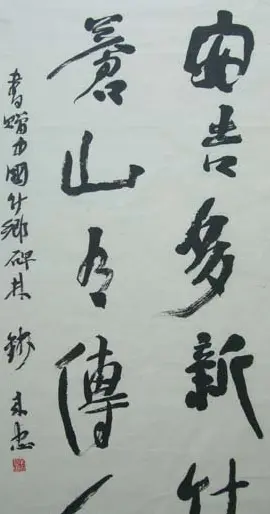 安吉多新竹
苍山有傳人
書贈中國竹鄉碑林 錢來忠